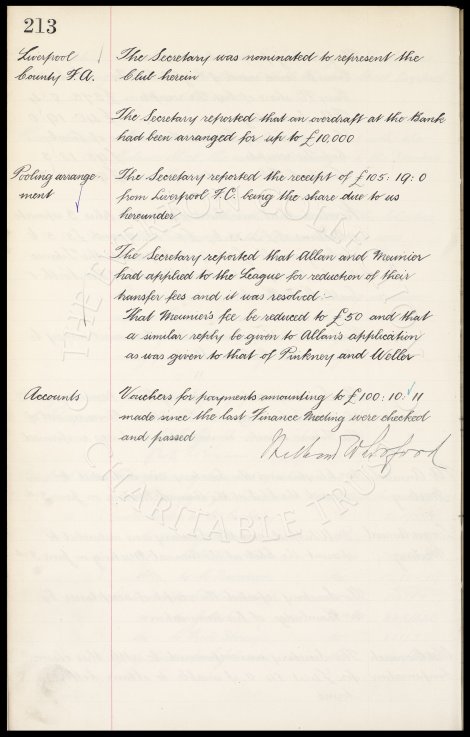 213
Liverpool County F.A.
The Secretary was nominated to represent the
Club herein
The Secretary reported that an overdraft at the Bank
had been arranged for up to £10,000
Pooling arrange-
ment
The Secretary reported the receipt of £105: 19: 0
from Liverpool F.C. being the share due to us
hereunder
The Secretary reported that Allan and Meunier
had applied to the League for reduction of their
transfer fees and it was resolved:-
That Meunier's fee be reduced to £50 and that
a similar reply be given to Allan's application
as was given to that of Pinkney and Weller
Accounts
Vouchers for payments amounting to £100: 10: 11
made since the last Finance Meeting were checked
and passed
CHARITABLE TRUST